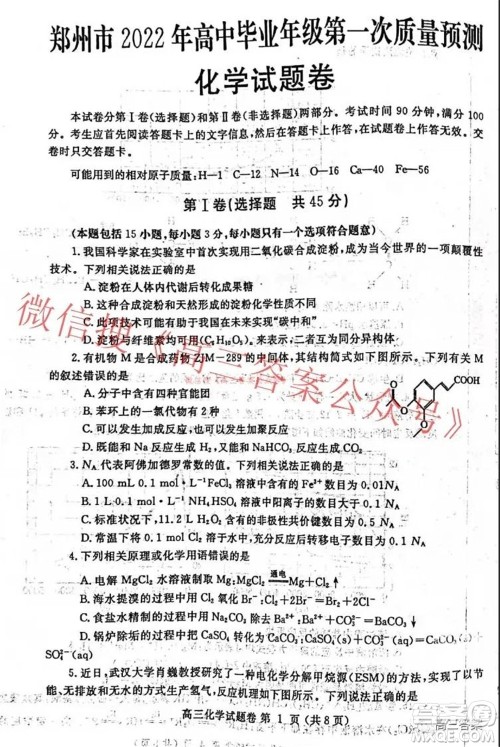 郑州市2022年高中毕业年级第一次质量预测
化学试题卷
本试卷分第Ⅰ卷(选择题)和第Ⅱ卷(非选择题)两部分。考试时间90分钟,满分100
分。考生应首先阅读答题卡上的文字信息,然后在答题卡上作答,在试题卷上作答无效。交
卷时只交答题卡。
可能用到的相对原子质量:H—1 C—12 N—14 O—16 Ca—40 Fe—56
第Ⅰ卷(选择题 共45分)
(本题包括15小题,每小题3分,每小题只有一个选项符合题意)
1.我国科学家在实验室中首次实现用二氧化碳合成淀粉,成为当今世界的一项颠覆性
技术。下列相关说法正确的是
A.淀粉在人体内代谢后转化成果糖
B.这种合成淀粉和天然形成的淀粉化学性质不同
C.此项技术可能有助于我国在未来实现“碳中和”
D.淀粉与纤维素均可用(C₆H₁₀O₅)ₙ来表示,二者互为同分异构体
2.有机物M是合成药物ZJM-289的中间体,其结构简式如下图所示。下列有关M
的叙述错误的是
COOH
A.分子中含有四种官能团
B.苯环上的一氯代物有2种
C.可以发生加成反应,也可以发生取代反应
D.既能和Na反应生成H₂,又能和NaHCO₃反应生成CO₂
3.Nᴀ代表阿佛加德罗常数的值。下列相关说法正确的是
A.100 mL 0.1 mol·L⁻¹ FeCl₃溶液中含有的Fe³⁺数目为0.01Nᴀ
B.1 L 0.1 mol·L⁻¹ NH₄HSO₄溶液中阳离子的数目大于0.1 Nᴀ
C.标准状况下,11.2 L H₂O₂含有的非极性共价键数目为0.5 Nᴀ
D.常温常压下,0.1 mol Cl₂溶于水中,充分反应后转移电子数目为0.1 Nᴀ
4.下列相关原理或化学用语错误的是
A.电解MgCl₂水溶液制取Mg:MgCl₂ 通电 Mg+Cl₂↑
B.海水提溴的过程中用Cl₂氧化Br⁻:Cl₂+2Br⁻=Br₂+2Cl⁻
C.食盐水精制的过程中用Na₂CO₃除去Ba²⁺:Ba²⁺+CO₃²⁻=BaCO₃↓
D.锅炉除垢的过程中将CaSO₄转化为CaCO₃:CaSO₄(s)+CO₃²⁻(aq)⇌CaCO₃(s)+
SO₄²⁻(aq)
5.近日,武汉大学肖巍教授研究了一种电化学分解甲烷源(ESM)的方法,实现了以节
能、无排放和无水的方式生产氢气,反应机理如下图所示。下列说法错误的是
高三化学试题卷 第1页(共8页)
微信搜《高三答案公众号》
高三答案